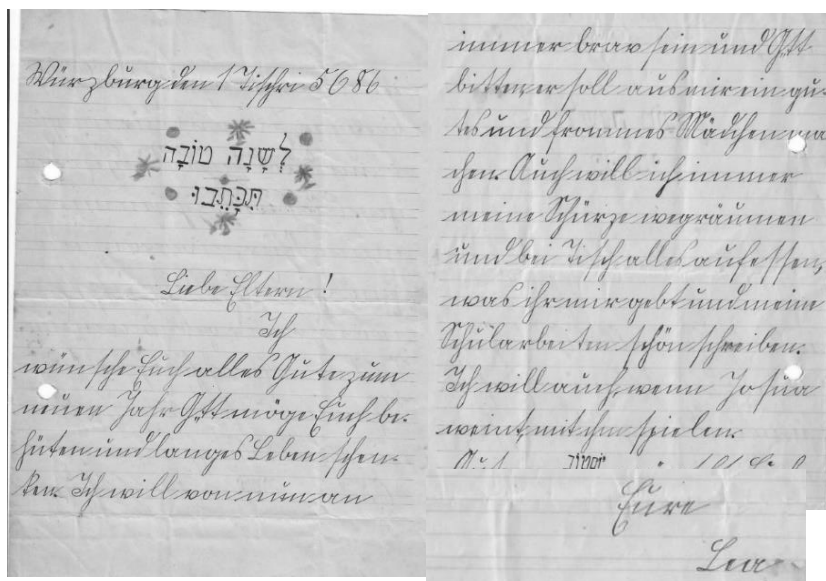 Würzburg den 1 Tischri 5686
לְשָׁנָה טוֹבָה
תִּכָּתֵבוּ
Liebe Eltern!
Ich
wünsche Euch alles Gute zum
neuen Jahr Gtt möge Euch be-
hüten und langes Leben schen-
ken. Ich will von nun an
immer brav sein und Gtt
bitten er soll aus mir ein gu-
tes und frommes Mädchen ma
chen. Auch will ich immer
meine Schürze wegräumen
und bei Tisch alles aufessen,
was ihr mir gebt und meine
Schularbeiten schön schreiben.
Ich will auch, wenn Josua
weint, mit ihm spielen.
יום טוב
Eure
Lea